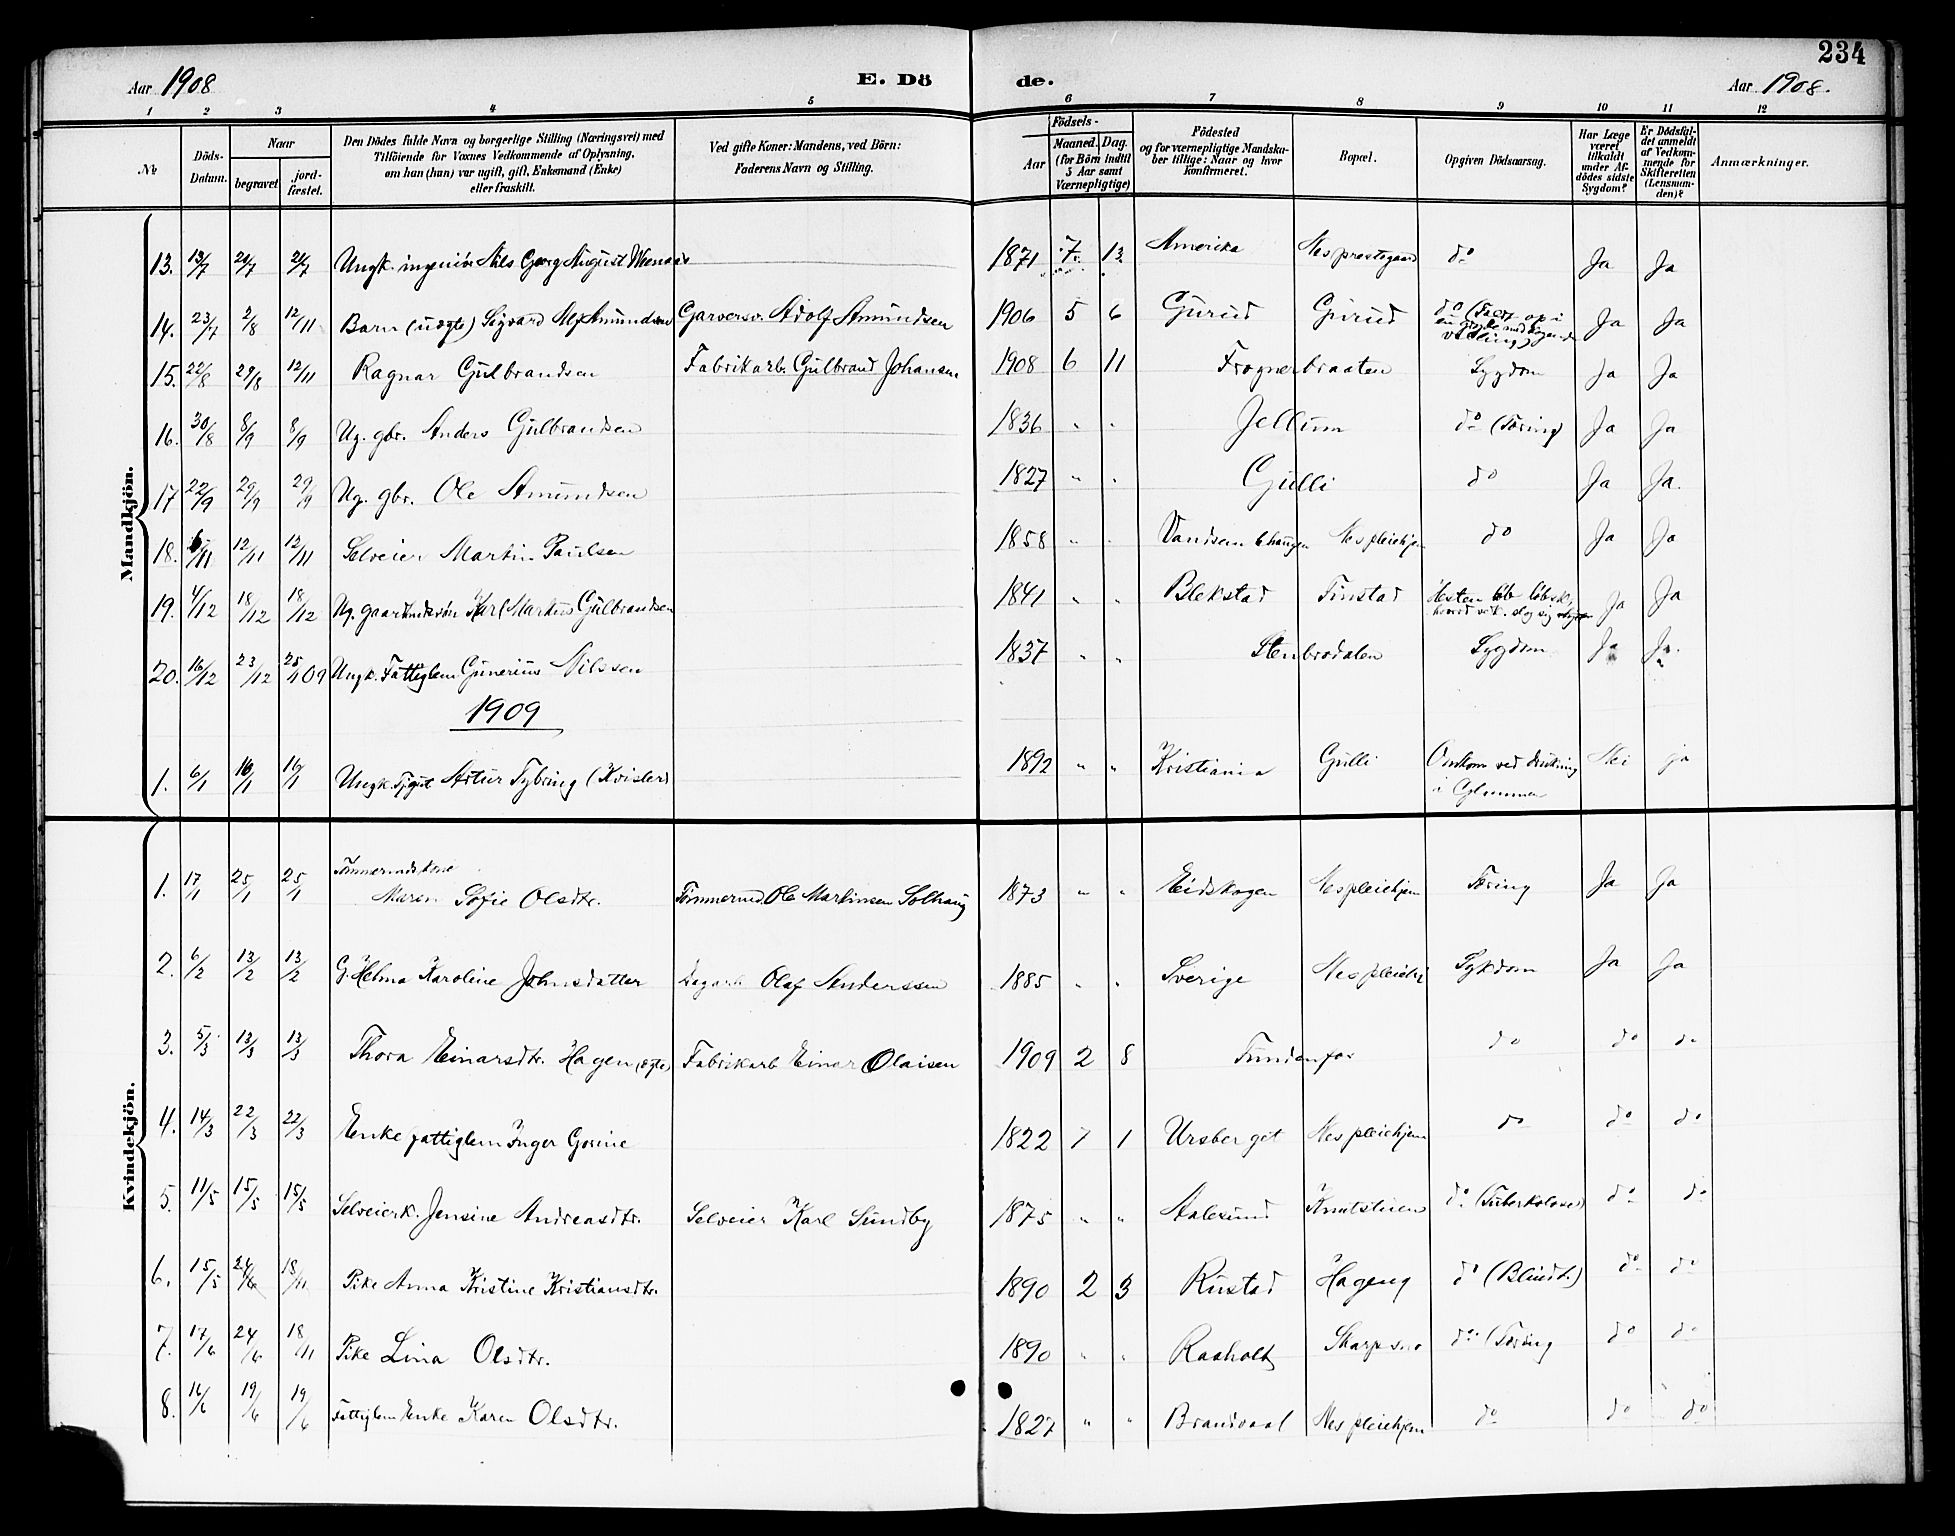 234
Aar 1908 E. Dö de. Aar 1908.
1 2 3 4 5 6 7 8 9 10 11 12
No
Döds-Datum.
Naar
begravet
jord-fæstet.
Den Dödes fulde Navn og borgerlige Stilling (Næringsvei) med
Tilföiende for Voxnes Vedkommende af Oplysning,
om han (hun) var ugift, gift, Enkemand (Enke)
eller fraskilt.
Ved gifte Koner: Mandens, ved Börn:
Faderens Navn og Stilling.
Födsels-
Aar
Maaned. Dag.
(for Börn indtil
5 Aar samt
Værnepligtige)
Födested
og for værnepligtige Mandska-
ber tillige: Naar og hvor
konfirmeret.
Bopæl.
Opgiven Dödsaarsag.
Har Læge
været
tilkaldt
under Af-
dödes sidste
Sygdom?
Er Dödsfal-
det anmeldt
af Vedkom-
mende for
Skifteretten
(Lensman-
den)?
Anmærkninger.
Mandkjön.
13. 13/7 20/7 21/7 Ungk. ingeniör Nils Georg August 1871 7 13 Amerika Nes prestegaard do Ja Ja
14. 23/7 2/8 12/11 Barn (uægte) Sigvard Alf Amundsen Garversv. Adolf Amundsen 1906 5 6 Gurud Gurud do (Faldt op i
en gryde med kogende
velling) Ja Ja
15. 22/8 29/8 12/11 Ragnar Gulbrandsen Fabrikarb. Gulbrand Johansen 1908 6 11 Frognerbraaten Sygdom Ja Ja
16. 30/8 8/9 8/9 Ug. gbr. Anders Gulbrandsen 1836 " " Jellum do (Tæring) Ja Ja
17 22/9 29/9 29/9 Ug. gbr. Ole Amundsen 1827 " " Gulli do Ja Ja.
18. 6/11 12/11 12/11 Selveier Martin Paulsen 1858 " " Nes pleiehjem do Ja Ja
19. 4/12 18/12 18/12 Ug. Karl Martin Gulbrandsen 1841 " " Blekstad Finstad Hesten løbsk, Ja Ja
20. 16/12 23/12 25/1 09 Ungk. Fattiglem Gunerius Nilssen 1837 " " Stenbrodalen Sygdom Ja Ja.
1909
1. 6/1 16/1 16/1 Ungk. Tjgut Artur Tybring 1892 " " Kristiania Gulli Omkom ved drukning
i Glommen Nei ja
Kvindekjön.
1. 17/1 25/1 25/1 Tömmermdskone
Maren Sofie Olsdtr. Tömmermd. Ole Martinsen Solhaug 1873 " " Eidskogen Nes pleiehjem Tæring Ja Ja
2. 6/2 13/2 13/2 G. Helma Karoline Johnsdatter Dagarb Olaf Anderssen 1885 " " Sverige Nes pleiehj Sykdom Ja Ja
3. 5/3 13/3 13/3 Thora Einarsdtr. Hagen (ægte) Fabrikarb Einar Olaisen 1909 2 8 Fundenfos do do do
4. 14/3 22/3 22/3 Enke fattiglem Inger Gorine 1822 7 1 Ursberget Nes pleiehjem do do do
5. 11/5 15/5 15/5 Selveierk. Jensine Andreasdtr. Selveier Karl Sundby 1875 " " Aalesund Knutstuen do (Tuberkolose) do do
6. 15/5 24/6 18/11 Pike Anna Kristine Kristiansdtr. 1890 2 3 Rustad Hageng do (Blindt.) do do
7. 17/6 24/6 18/11 Pike Lina Olsdtr. 1890 " " Raaholt Skarpsno do (Tæring do do
8. 16/6 19/6 19/6 Fattiglem Enke Karen Olsdtr. 1827 " " Brandvaal Nes pleiehjem do do do